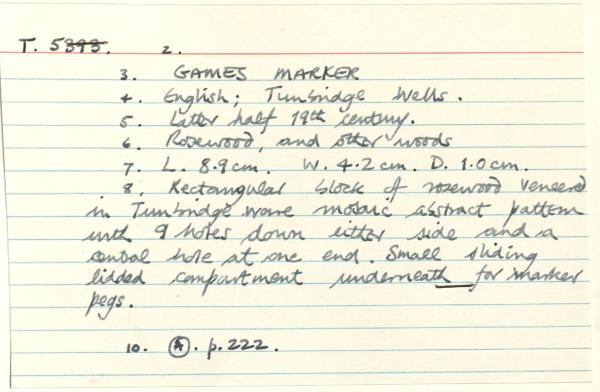 T. 5393. 2.
3. GAMES MARKER
4. English; Tunbridge Wells.
5. Latter half 19th century.
6. Rosewood, and other woods
7. L. 8.9cm. W. 4.2cm. D. 1.0cm.
8. Rectangular block of rosewood veneered
in Tunbridge ware mosaic abstract pattern
with 9 holes down either side and a
central hole at one end. Small sliding
lidded compartment underneath for marker
pegs.
10. p.222.